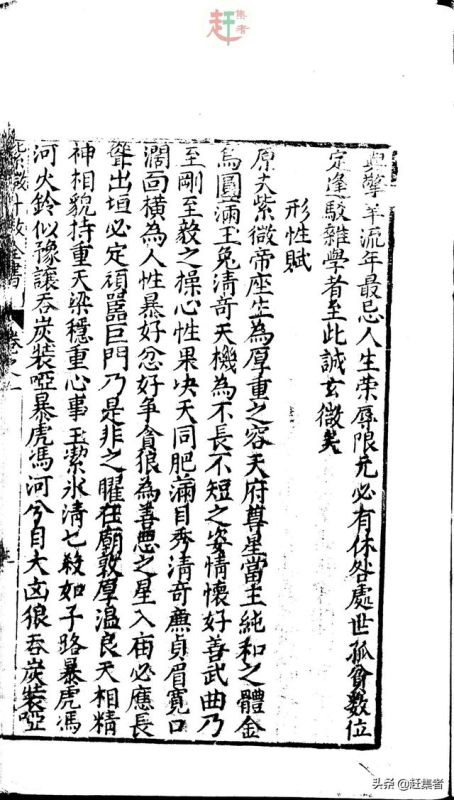 赶集者
與擎羊流年最忌人生荣辱限元必有休咎處世孤貧數位
定逢駁雜學者至此誠玄微矣
形性賦
原夫紫微帝座生為厚重之容天府尊星當主純和之體金
烏圓滿玉兔清奇天機為不長不短之姿情懷好善武曲乃
至剛至毅之操心性果决天同肥滿目秀清奇廉貞眉寬口
濶面横為人性暴好忿好争貪狼為善惡之星入庙必應長
聳出垣必定頑嚚巨門乃是非之曜在廟敦厚温良天相精
神相貌持重天梁穩重心事玉潔冰清七殺如子路暴虎馮
河火鈴似豫讓吞炭裝啞暴虎馮河兮目大凶狼吞炭裝啞
微斗数全書 卷之一
头条 @赶集者